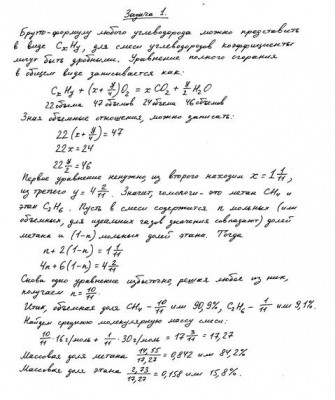 Задача 1.
Брутто-формулу любого углеводорода можно представить
в виде CxHy, для смеси углеводородов коэффициенты
могут быть дробными. Уравнение полного сгорания
в общем виде записывается как:
CxHy + (x + y/4)O₂ = x CO₂ + y/2 H₂O
22 объема 47 объемов 24 объема 46 объемов
Зная объемные отношения, можно записать:
22(x + y/4) = 47
22x = 24
22 y/2 = 46
Первое уравнение ненужно, из второго находим x = 1 1/11,
из третьего y = 4 2/11. Значит, гомологи - это метан CH₄ и
этан C₂H₆. Пусть в смеси содержится n мольных (или
объемных, для идеальных газов значения совпадают) долей
метана и (1-n) мольных долей этана. Тогда
n + 2(1-n) = 1 1/11
4n + 6(1-n) = 4 2/11
Снова одно уравнение избыточно, решая любое из них,
получаем n = 10/11.
Итак, объемная доля CH₄ - 10/11 или 90,9%, C₂H₆ - 1/11 или 9,1%.
Найдем среднюю молекулярную массу смеси:
10/11 · 16 г/моль + 1/11 · 30 г/моль = 17 3/11 = 17,27
Массовая доля метана 14,55/17,27 = 0,842 или 84,2%
Массовая доля этана 2,73/17,27 = 0,158 или 15,8%.